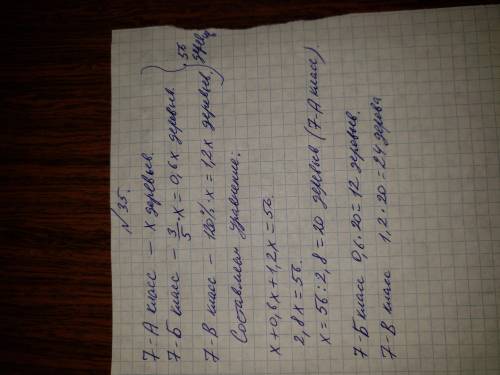 № 35.
7-А класс – x деревьев.
7-Б класс – 3/5 · x = 0,6x деревьев. } 56 дерев
7-В класс – 120% · x = 1,2x деревьев.
Составляем уравнение:
x+0,6x+1,2x=56
2,8x=56.
x=56:2,8=20 деревьев (7-А класс)
7-Б класс 0,6·20=12 деревьев.
7-В класс 1,2·20=24 дерева